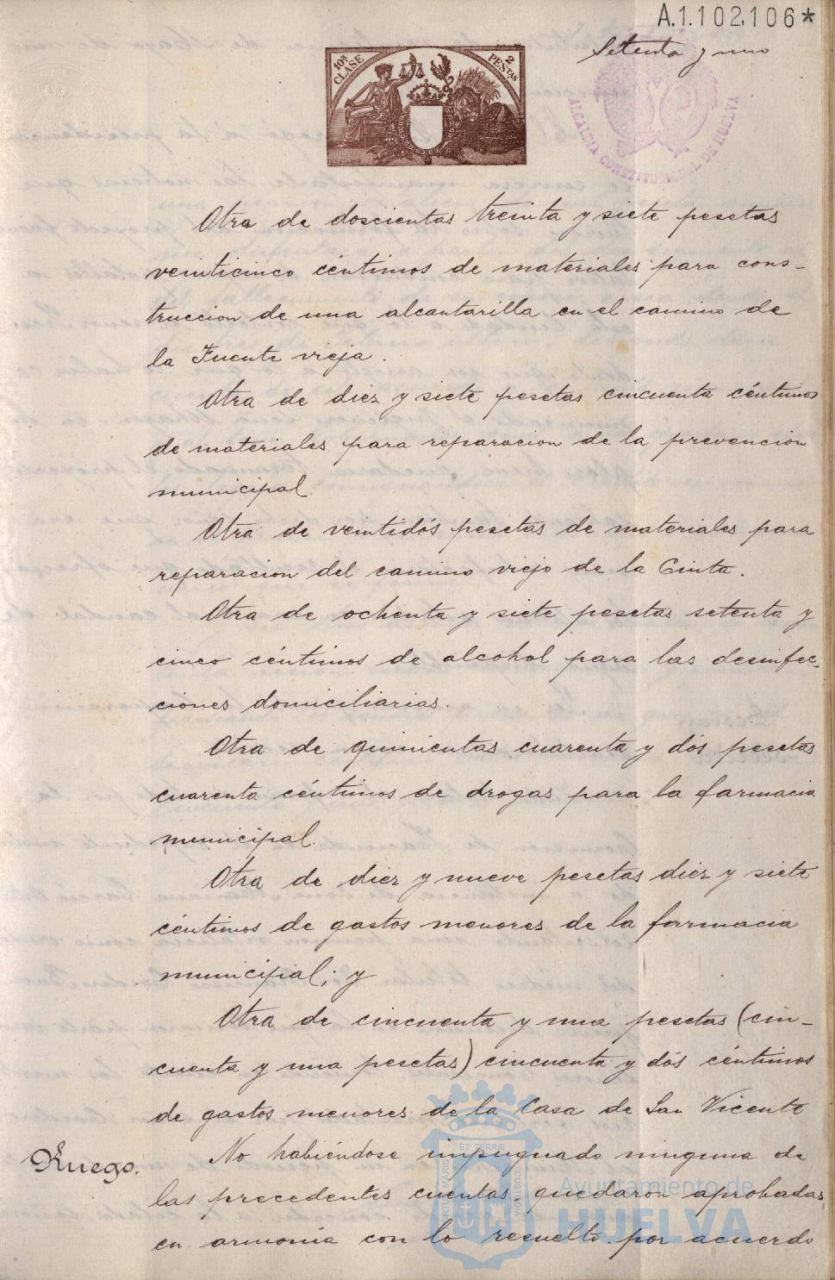 A.1.102,106*
Setenta y uno
10ª CLASE
2 PESTAS
ALCALDIA CONSTITUCIONAL DE HUELVA
Otra de doscientas treinta y siete pesetas
veinticinco céntimos de materiales para cons-
truccion de una alcantarilla en el camino de
la Fuente vieja.
Otra de diez y siete pesetas cincuenta céntimos
de materiales para reparacion de la prevencion
municipal.
Otra de veintidós pesetas de materiales para
reparacion del camino viejo de la Cinta.
Otra de ochenta y siete pesetas setenta y
cinco céntimos de alcohol para las desinfec-
ciones domiciliarias.
Otra de quinientas cuarenta y dós pesetas
cuarenta céntimos de drogas para la farmacia
municipal.
Otra de diez y nueve pesetas diez y siete
céntimos de gastos menores de la farmacia
municipal; y
Otra de cincuenta y una pesetas (cin-
cuenta y una pesetas) cincuenta y dós céntimos
de gastos menores de la Casa de San Vicente
Ruego.
No habiéndose impugnado ninguna de
las precedentes cuentas, quedaron aprobadas
en armonía con lo resuelto por acuerdo
Ayuntamiento de
HUELVA